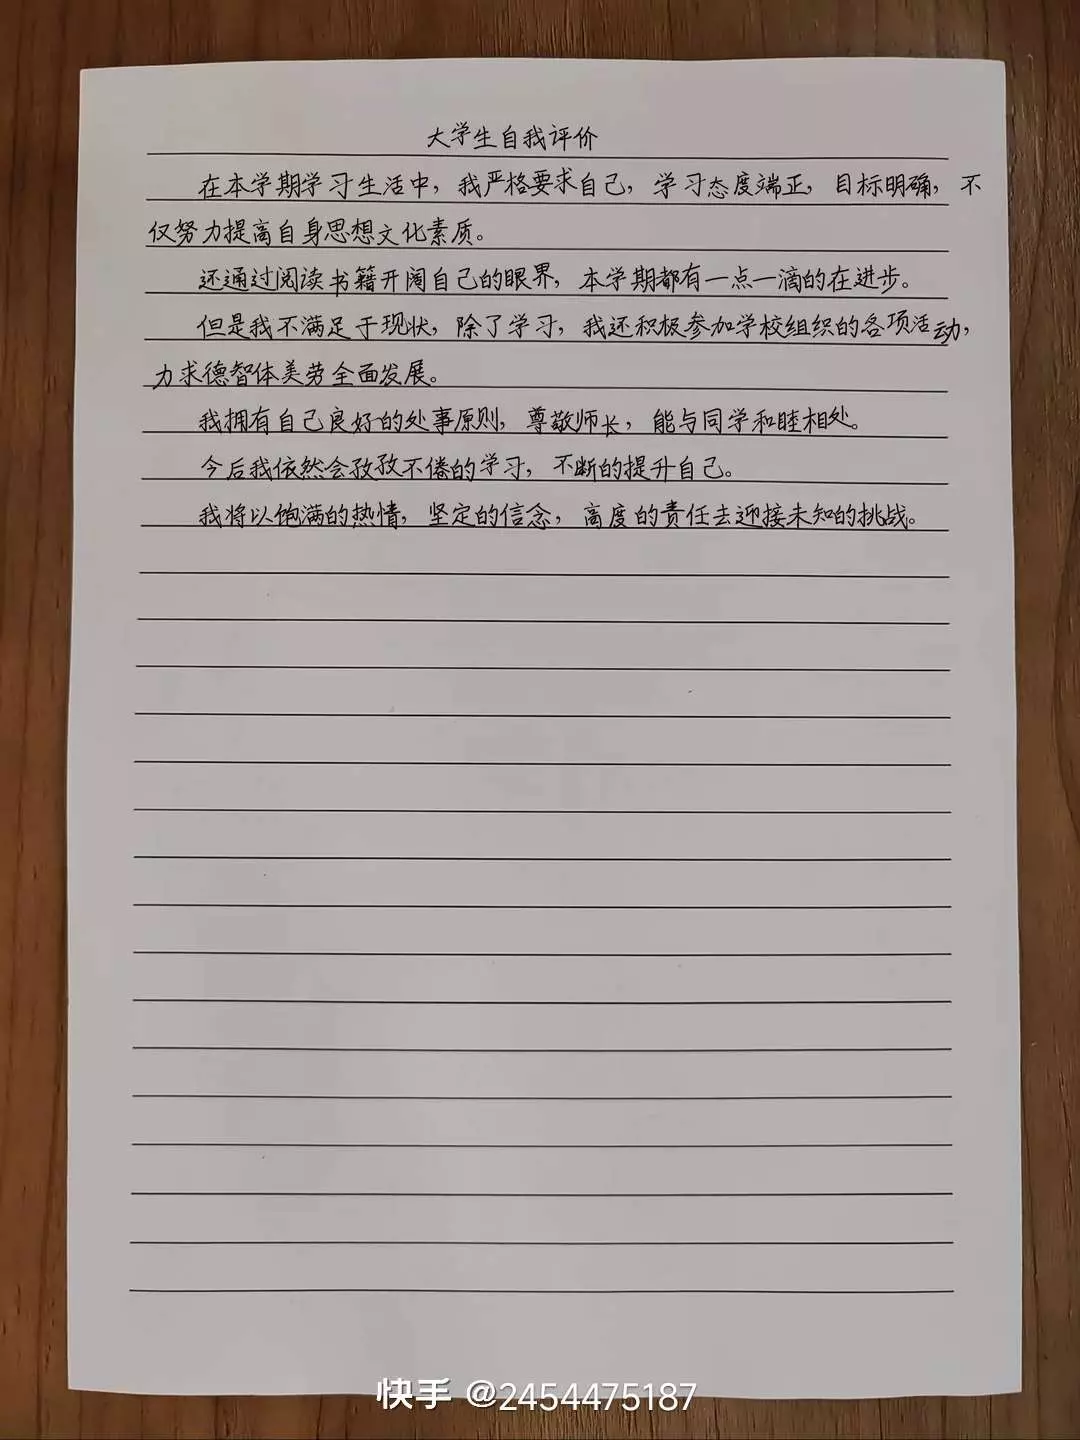 大学生自我评价
在本学期学习生活中，我严格要求自己，学习态度端正，目标明确，不
仅努力提高自身思想文化素质。
还通过阅读书籍开阔自己的眼界，本学期都有一点一滴的在进步。
但是我不满足于现状，除了学习，我还积极参加学校组织的各项活动，
力求德智体美劳全面发展。
我拥有自己良好的处事原则，尊敬师长，能与同学和睦相处。
今后我依然会孜孜不倦的学习，不断的提升自己。
我将以饱满的热情，坚定的信念，高度的责任去迎接未知的挑战。
快手 @2454475187